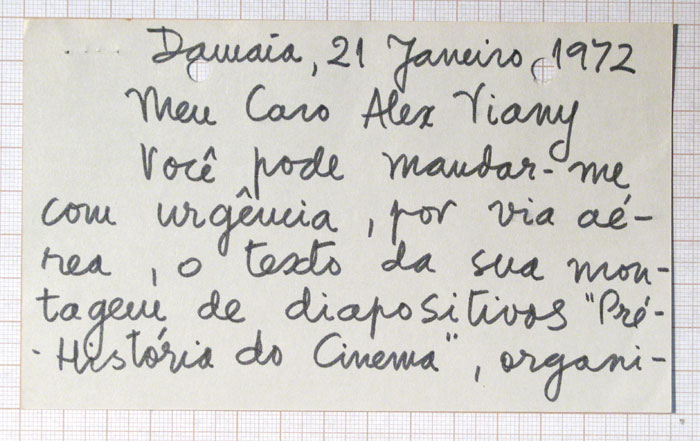 Damaia, 21 Janeiro, 1972
Meu Caro Alex Viany
Você pode mandar-me
com urgência, por via aé-
rea, o texto da sua mon-
tagem de diapositivos "Pré-
-História do Cinema", organi-